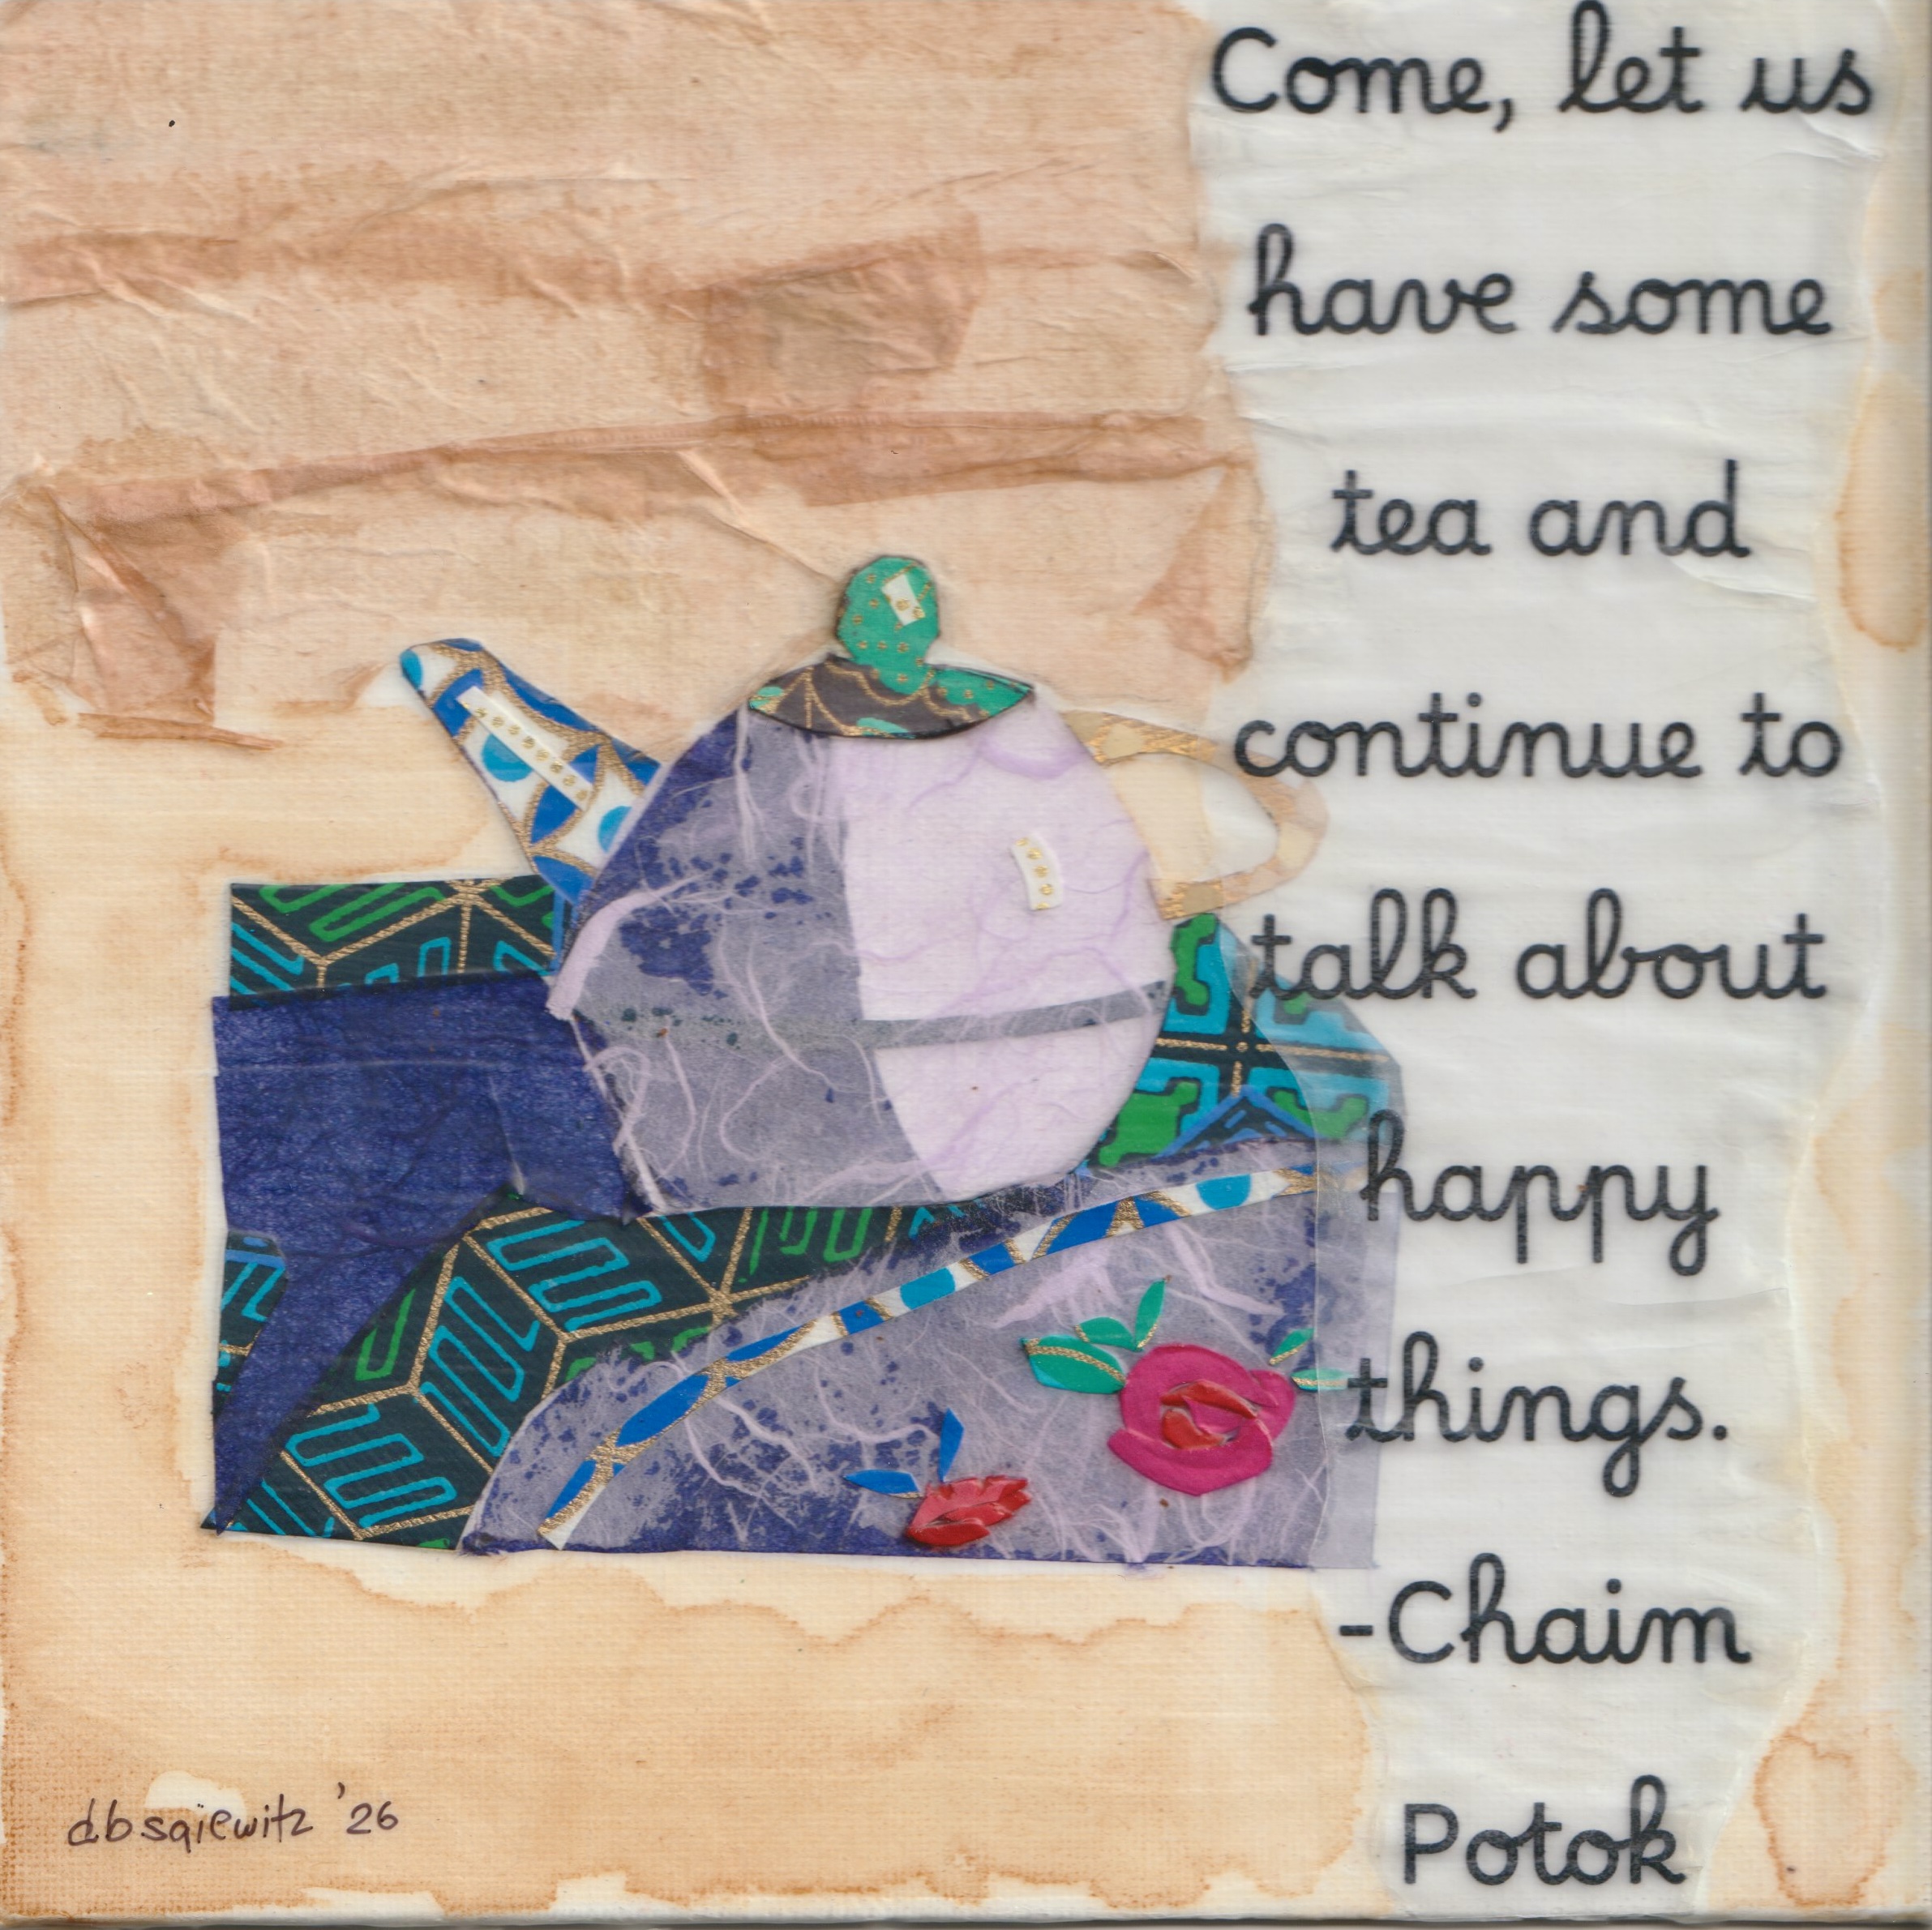 Come, let us
have some
tea and
continue to
talk about
happy
things.
-Chaim
Potok
dbsqiewitz '26